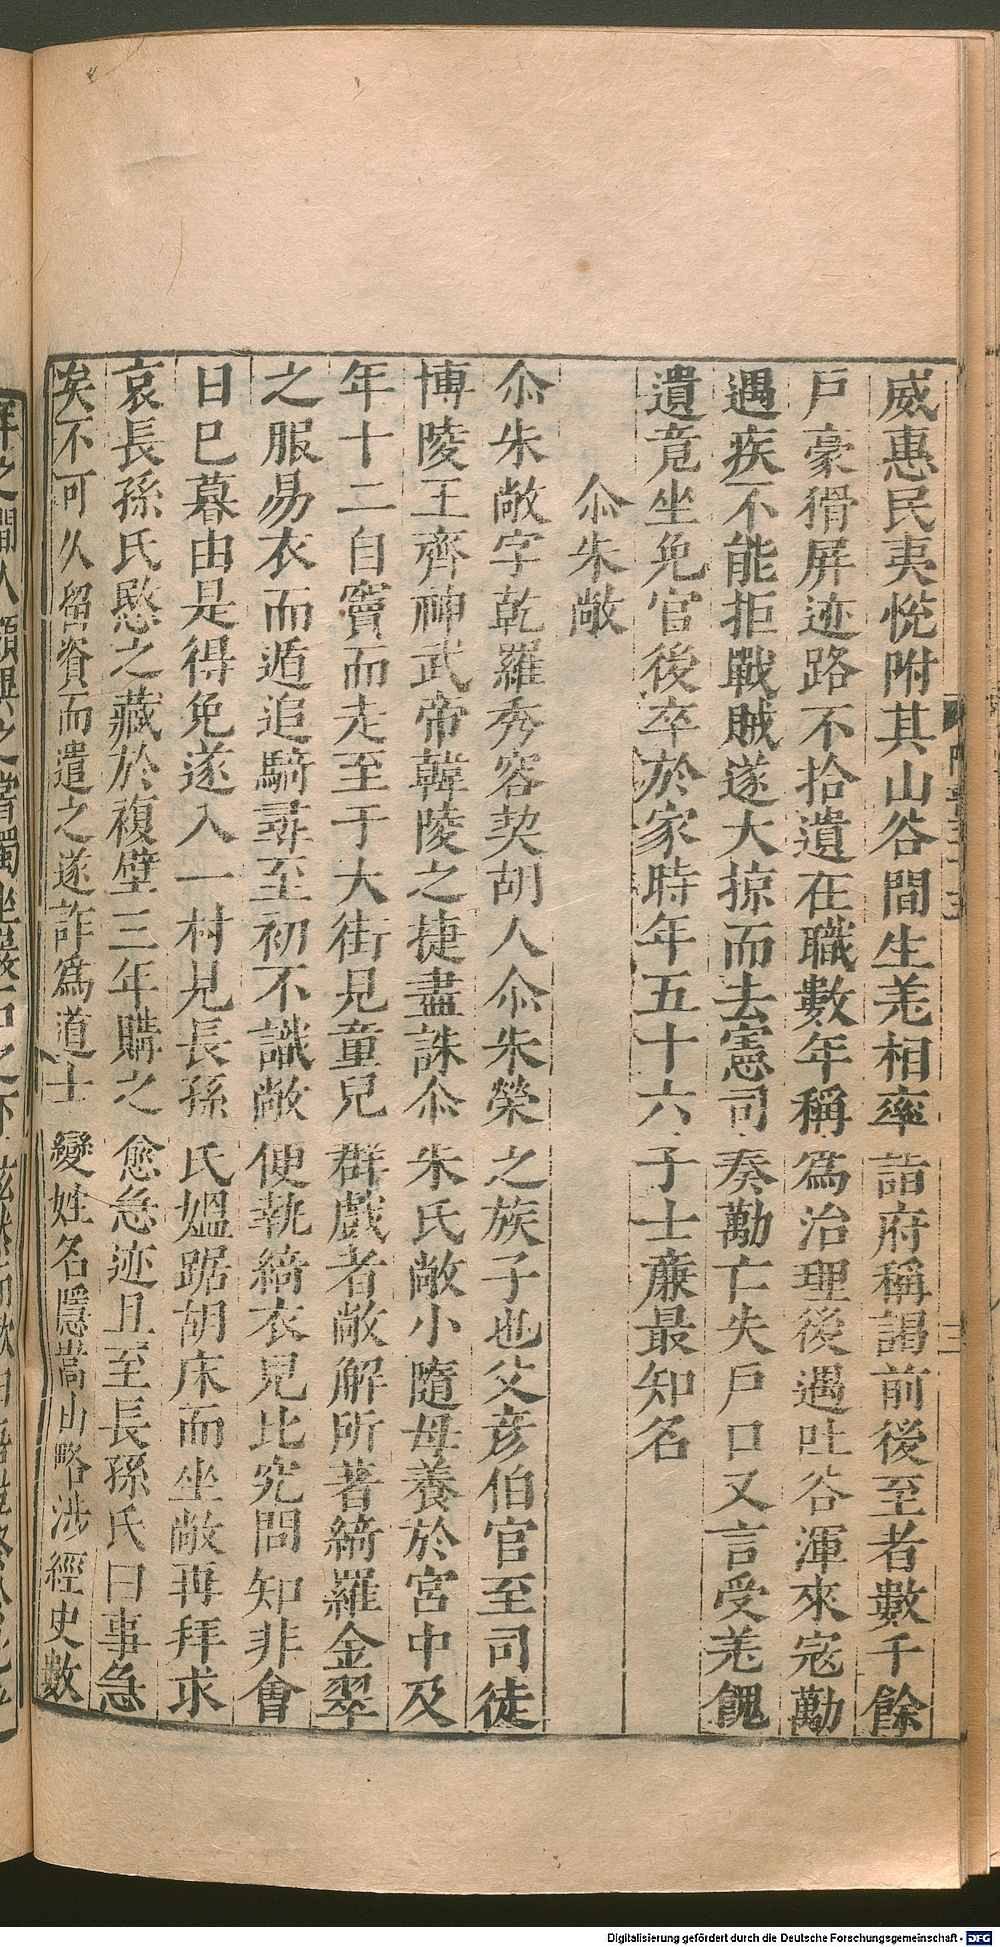 威惠民夷悅附其山谷間生羌相率詣府稱謁前後至者數千餘
戶豪猾屏迹路不拾遺在職數年稱爲治理後遇吐谷渾來寇勱
遇疾不能拒戰賊遂大掠而去憲司奏勱亡失戶口又言受羌餽
遺竟坐免官後卒於家時年五十六子士廉最知名
尒朱敞
尒朱敞字乾羅秀容契胡人尒朱榮之族子也父彦伯官至司徒
博陵王齊神武帝韓陵之捷盡誅尒朱氏敞小隨母養於宮中及
年十二自竇而走至于大街見童兒群戲者敞解所著綺羅金翠
之服易衣而遁追騎尋至初不識敞便執綺衣兒比究問知非會
日已暮由是得免遂入一村見長孫氏媼踞胡床而坐敞再拜求
哀長孫氏愍之藏於複壁三年購之愈急迹且至長孫氏曰事急
矣不可久留資而遣之遂詐爲道士變姓名隱嵩山略涉經史數
Digitalisierung gefördert durch die Deutsche Forschungsgemeinschaft - DFG